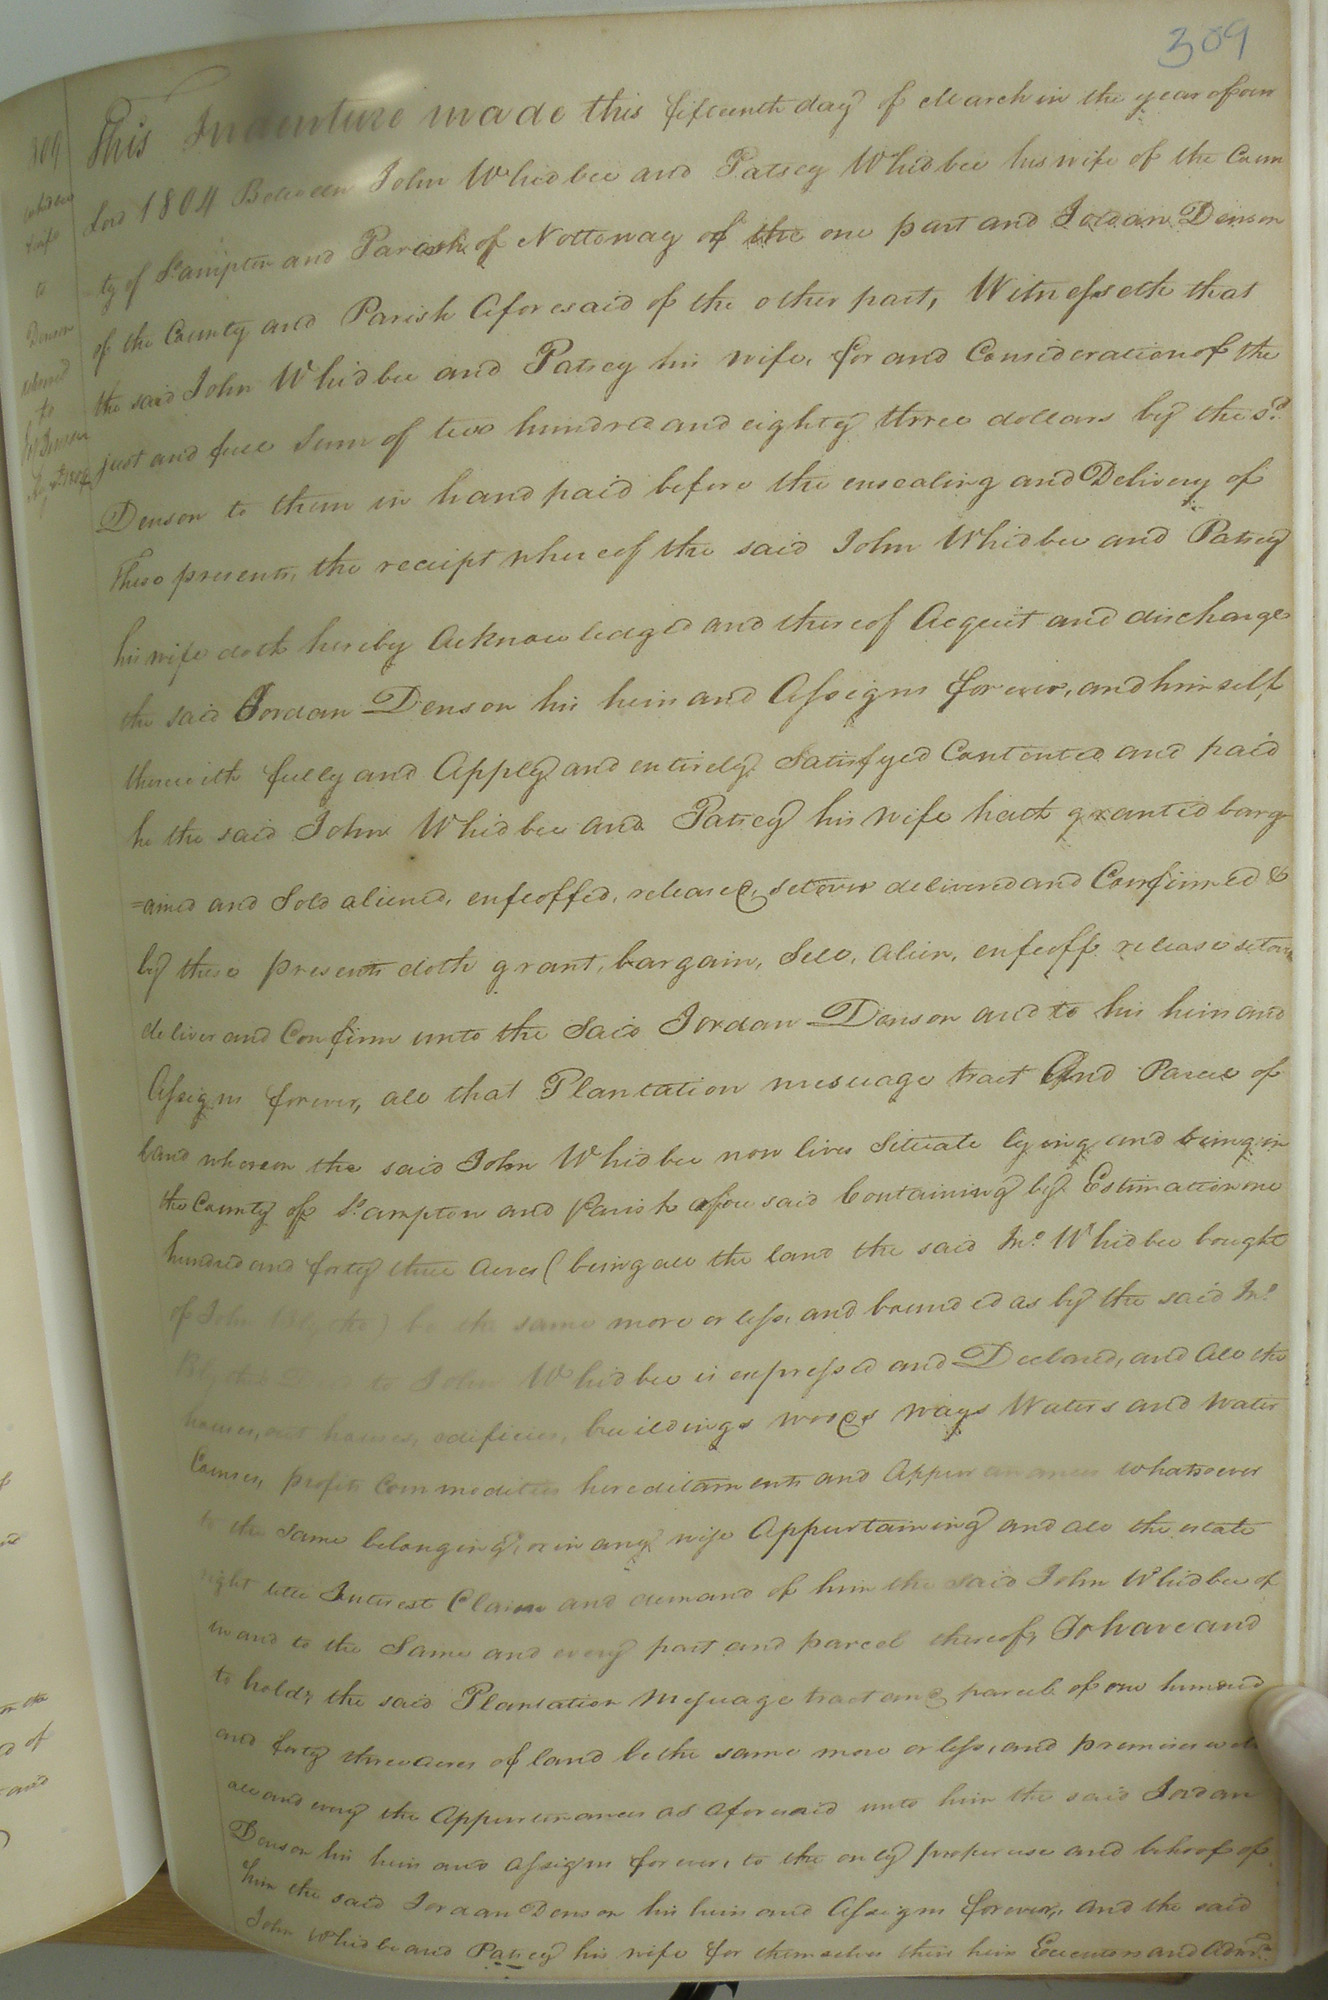 309
This Indenture made this fifteenth day of March in the year of our
Lord 1804 Between John Whidbee and Patsey Whidbee his wife of the Coun
-ty of S.ampton and Parish of Nottoway of the one part and Jordan Denson
of the County and Parish Aforesaid of the other part, Witnesseth that
the said John Whidbee and Patsey his wife, for and Consideration of the
just and full Sum of two hundred and eighty three dollars by the sd.
Denson to them in hand paid before the ensealing and Delivery of
these presents, the receipt whereof the said John Whidbee and Patsey
his wife doth hereby Acknowledged and thereof Acquit and discharge
the said Jordan Denson his heirs and Assigns forever, and himself
therewith fully and Apply and entirely Satisfyed Contented and paid
he the said John Whidbee and Patsey his wife hath granted barg
=ained and Sold aliened, enfeoffed, released, setover delivered and Confirmed &
by these presents doth grant, bargain, Sell, alien, enfeoff release setover
deliver and Confirm unto the Said Jordan Denson and to his heirs and
Assigns forever, all that Plantation mesuage tract And Parcel of
land whereon the said John Whidbee now lives Situate lying and being in
the County of S.ampton and Parish afore said Containing by Estimation one
hundred and forty three Acres (being all the land the said Jno. Whidbee bought
of John be the same more or less, and bounded as by the said Jno.
to John Whidbee is expressed and Declared, and all the
houses, out houses, edifices, buildings woods ways Waters and Water
Courses, profits Commodities hereditaments and Appurtanances whatsoever
to the Same belonging, or in any wise Appurtaining and all the estate
right title Interest Claim and demand of him the said John Whidbee of
in and to the Same and every part and parcel thereof, To have and
to hold, the said Plantation Messuage tract and parcel of one hundred
and forty three acres of land be the same more or less, and premises with
all and every the Appurtenances as aforesaid unto him the said Jordan
Denson his heirs and Assigns forever, to the only proper use and behoof of
him the said Jordan Denson his heirs and Assigns forever, and the said
John Whidbee and Patsey his wife for themselves their heirs Executors and Admrs.
309
Whidbee
& wife
to
Denson
delivered
to